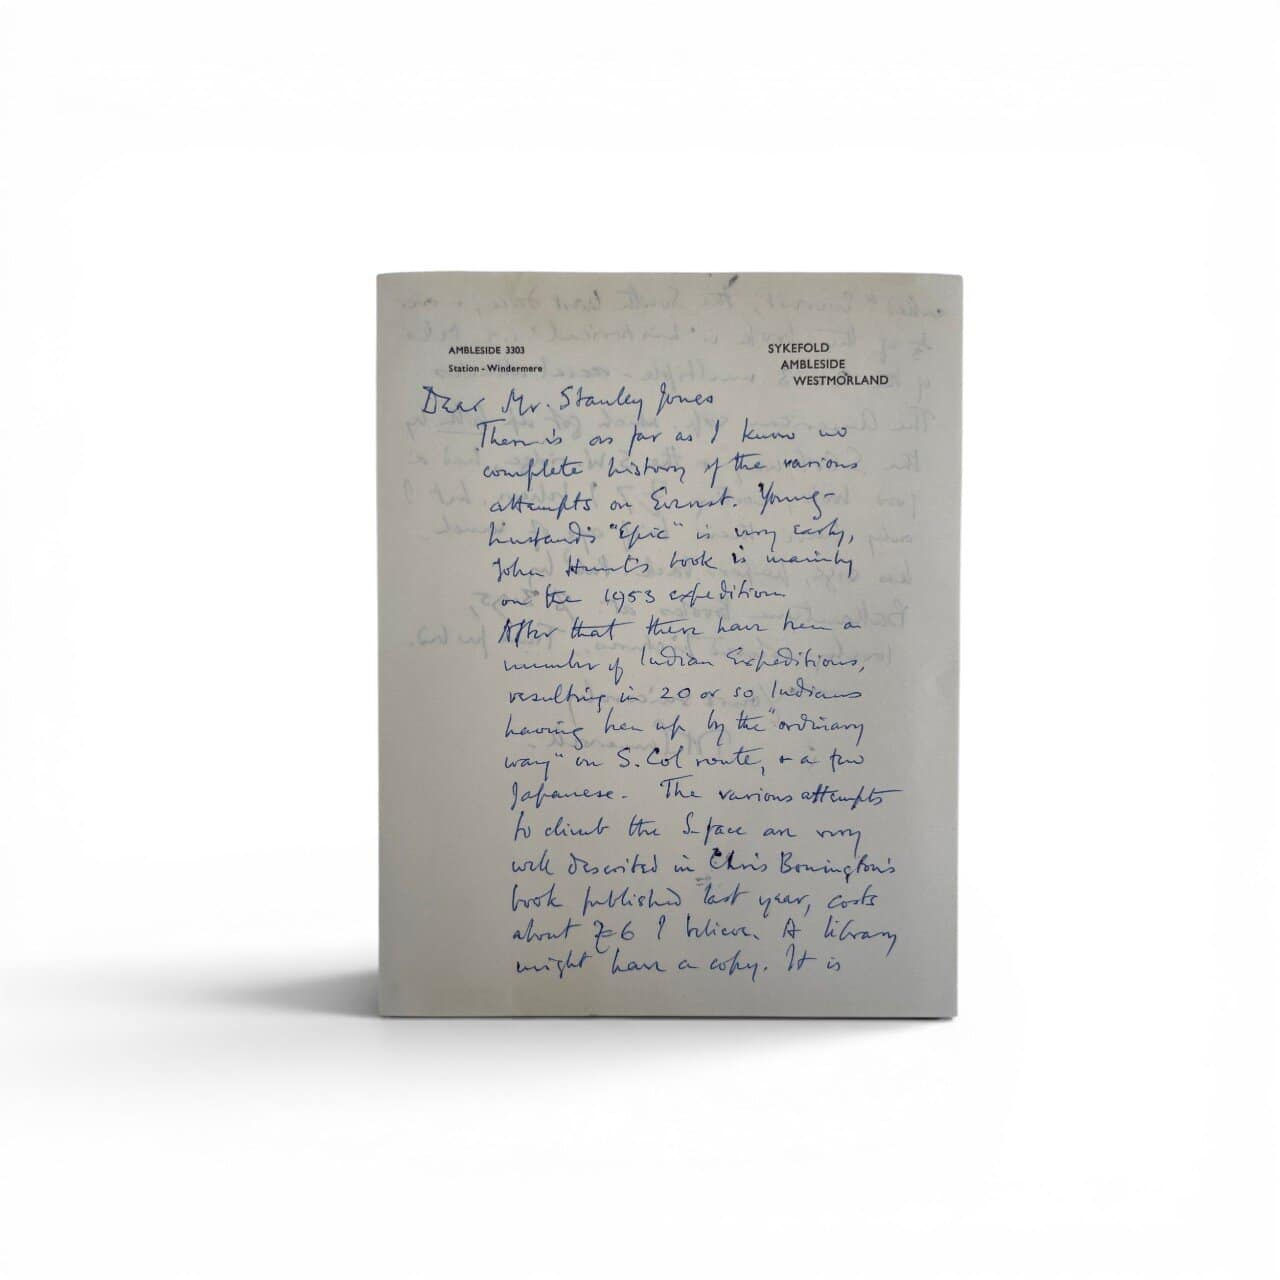 AMBLESIDE 3303
Station - Windermere
SYKEFOLD
AMBLESIDE
WESTMORLAND
Dear Mr. Stanley Jones
There is as far as I know no
complete history of the various
attempts on Everest. Young-
husband's "Epic" is very early,
John Hunt's book is mainly
on the 1953 expedition
After that there have been a
number of Indian Expeditions,
resulting in 20 or so Indians
having been up by the "ordinary
way" on S. Col route, + a few
Japanese. The various attempts
to climb the S-face are very
well described in Chris Bonington's
book published last year, costs
about £6 I believe. A library
might have a copy. It is